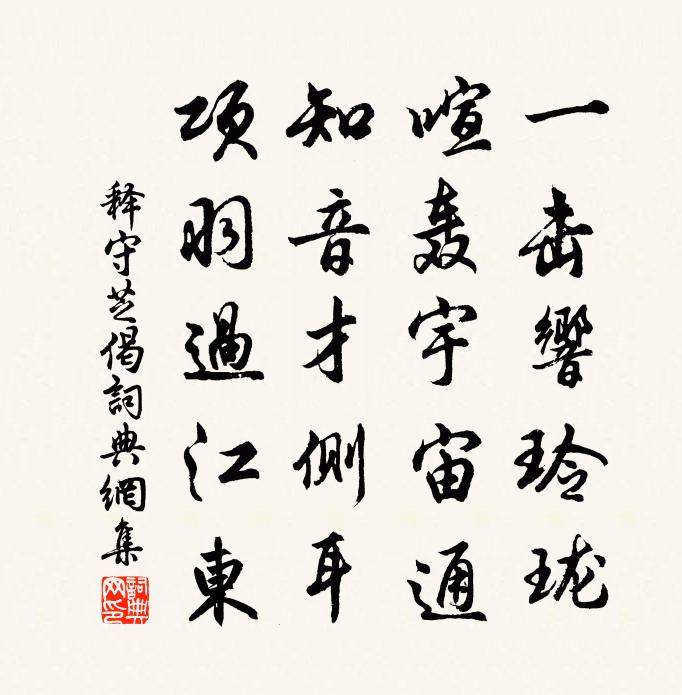 一击響玲珑
喧轰宇宙通
知音才侧耳
项羽過江東
释守芝偈詞典網集
詞典网印